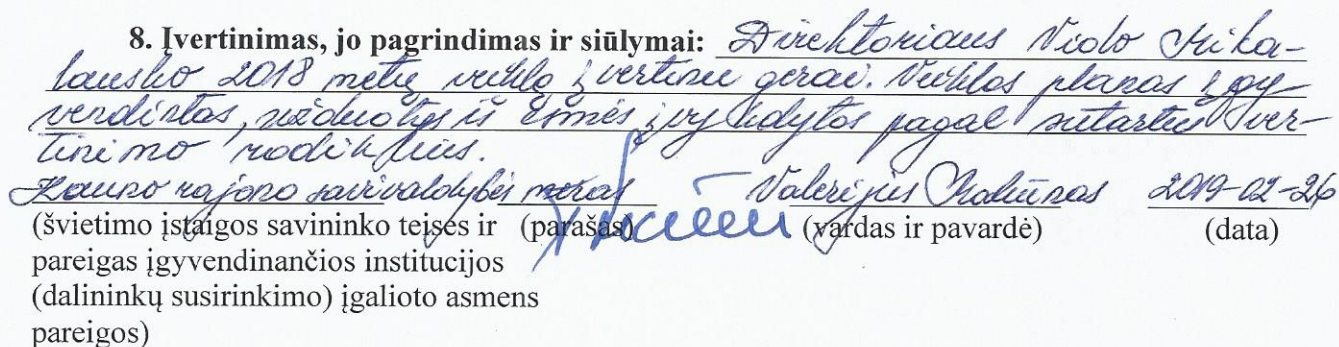 8. Įvertinimas, jo pagrindimas ir siūlymai: Direktoriaus Vido Mika-
lausko 2018 metų veiklą įvertinu gerai. Veiklos planas įgy
vendintas, užduotys iš esmės įvykdytos pagal sutartus ver-
tinimo rodiklius.
Kauno rajono savivaldybės meras Valerijus Makūnas 2019-02-26
(švietimo įstaigos savininko teises ir (parašas) (vardas ir pavardė) (data)
pareigas įgyvendinančios institucijos
(dalininkų susirinkimo) įgalioto asmens
pareigos)